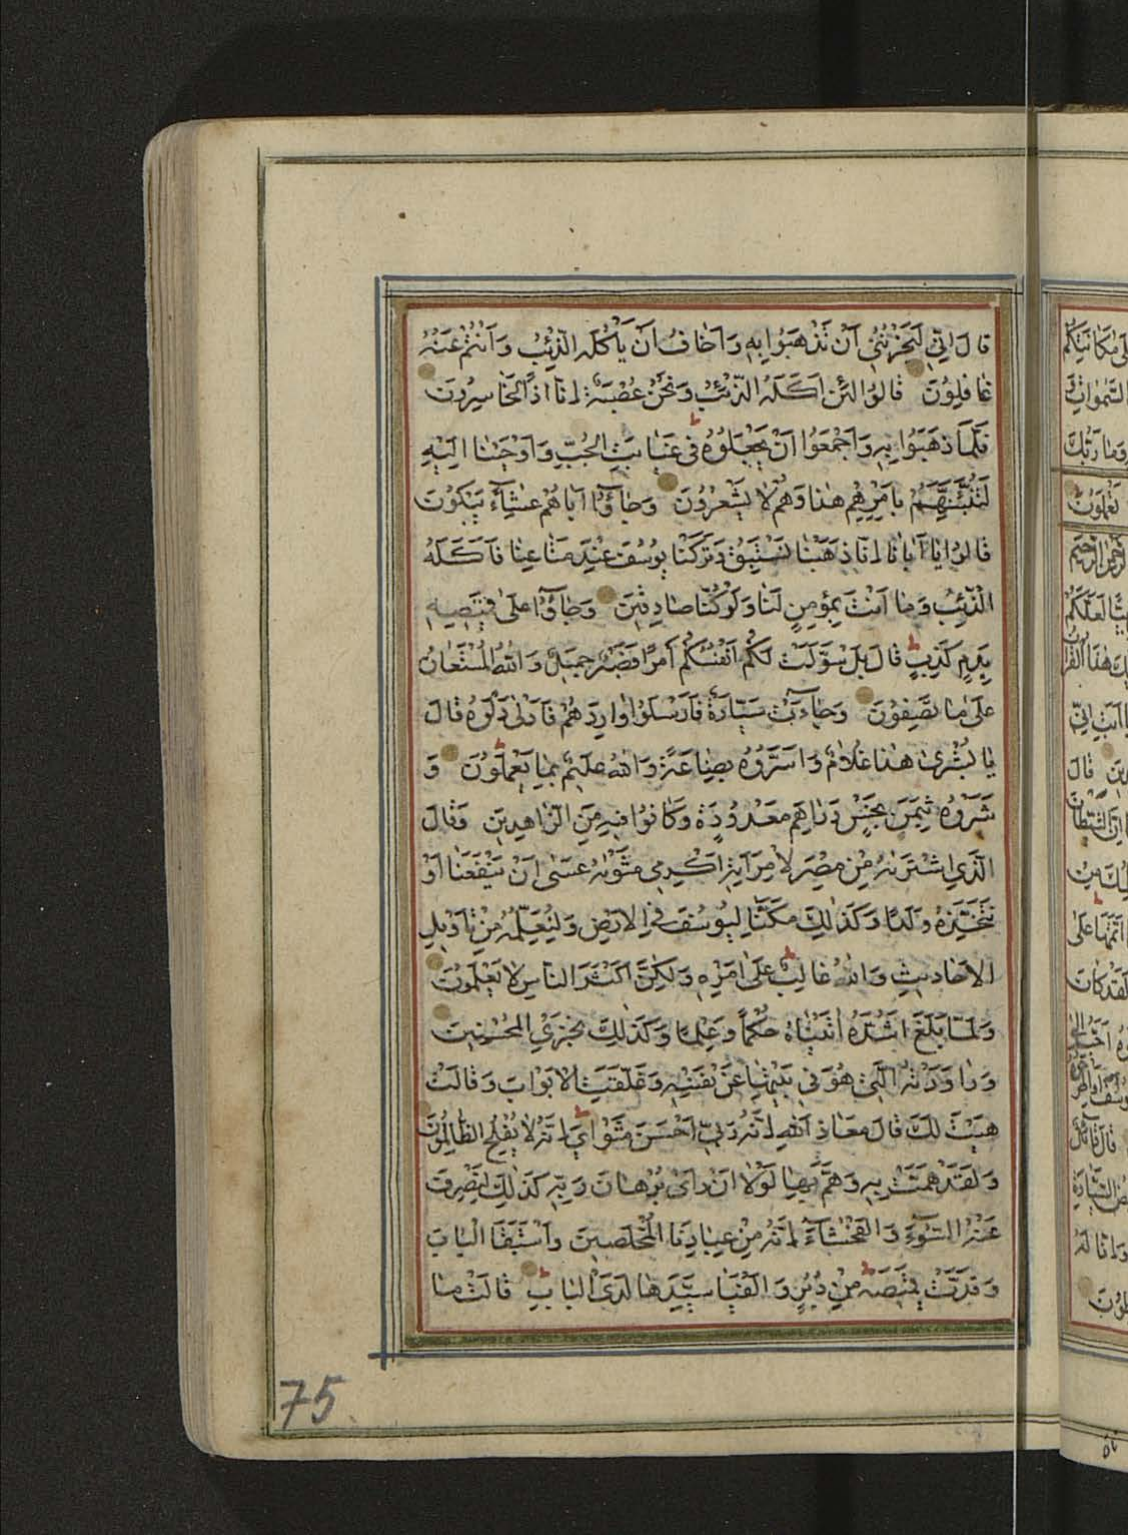 قَالَ اِنِّي لَيَحْزُنُنِي اَنْ تَذْهَبُوا بِهِ وَاَخَافُ اَنْ يَأْكُلَهُ الذِّئْبُ وَاَنْتُمْ عَنْهُ
غَافِلُونَ قَالُوا لَئِنْ اَكَلَهُ الذِّئْبُ وَنَحْنُ عُصْبَةٌ اِنَّا اِذًا لَخَاسِرُونَ
فَلَمَّا ذَهَبُوا بِهِ وَاَجْمَعُوا اَنْ يَجْعَلُوهُ فِي غَيَابَتِ الْجُبِّ وَاَوْحَيْنَا اِلَيْهِ
لَتُنَبِّئَنَّهُمْ بِاَمْرِهِمْ هٰذَا وَهُمْ لَا يَشْعُرُونَ وَجَاؤُا اَبَاهُمْ عِشَاءً يَبْكُونَ
قَالُوا يَا اَبَانَا اِنَّا ذَهَبْنَا نَسْتَبِقُ وَتَرَكْنَا يُوسُفَ عِنْدَ مَتَاعِنَا فَاَكَلَهُ
الذِّئْبُ وَمَا اَنْتَ بِمُؤْمِنٍ لَنَا وَلَوْ كُنَّا صَادِقِينَ وَجَاؤُا عَلَى قَمِيصِهِ
بِدَمٍ كَذِبٍ قَالَ بَلْ سَوَّلَتْ لَكُمْ اَنْفُسُكُمْ اَمْرًا فَصَبْرٌ جَمِيلٌ وَاللّٰهُ الْمُسْتَعَانُ
عَلَى مَا تَصِفُونَ وَجَاءَتْ سَيَّارَةٌ فَاَرْسَلُوا وَارِدَهُمْ فَاَدْلٰى دَلْوَهُ قَالَ
يَا بُشْرٰى هٰذَا غُلَامٌ وَاَسَرُّوهُ بِضَاعَةً وَاللّٰهُ عَلِيمٌ بِمَا يَعْمَلُونَ وَ
شَرَوْهُ بِثَمَنٍ بَخْسٍ دَرَاهِمَ مَعْدُودَةٍ وَكَانُوا فِيهِ مِنَ الزَّاهِدِينَ وَقَالَ
الَّذِي اشْتَرٰيهُ مِنْ مِصْرَ لِامْرَاَتِهِ اَكْرِمِي مَثْوٰيهُ عَسٰى اَنْ يَنْفَعَنَا اَوْ
نَتَّخِذَهُ وَلَدًا وَكَذٰلِكَ مَكَّنَّا لِيُوسُفَ فِي الْاَرْضِ وَلِنُعَلِّمَهُ مِنْ تَأْوِيلِ
الْاَحَادِيثِ وَاللّٰهُ غَالِبٌ عَلٰى اَمْرِهِ وَلٰكِنَّ اَكْثَرَ النَّاسِ لَا يَعْلَمُونَ
وَلَمَّا بَلَغَ اَشُدَّهُ اٰتَيْنَاهُ حُكْمًا وَعِلْمًا وَكَذٰلِكَ نَجْزِي الْمُحْسِنِينَ
وَرَاوَدَتْهُ الَّتِي هُوَ فِي بَيْتِهَا عَنْ نَفْسِهِ وَغَلَّقَتِ الْاَبْوَابَ وَقَالَتْ
هَيْتَ لَكَ قَالَ مَعَاذَ اللّٰهِ اِنَّهُ رَبِّي اَحْسَنَ مَثْوَايَ اِنَّهُ لَا يُفْلِحُ الظَّالِمُونَ
وَلَقَدْ هَمَّتْ بِهِ وَهَمَّ بِهَا لَوْلَا اَنْ رَاٰى بُرْهَانَ رَبِّهِ كَذٰلِكَ لِنَصْرِفَ
عَنْهُ السُّوءَ وَالْفَحْشَاءَ اِنَّهُ مِنْ عِبَادِنَا الْمُخْلَصِينَ وَاسْتَبَقَا الْبَابَ
وَقَدَّتْ قَمِيصَهُ مِنْ دُبُرٍ وَاَلْفَيَا سَيِّدَهَا لَدَى الْبَابِ قَالَتْ مَا
75